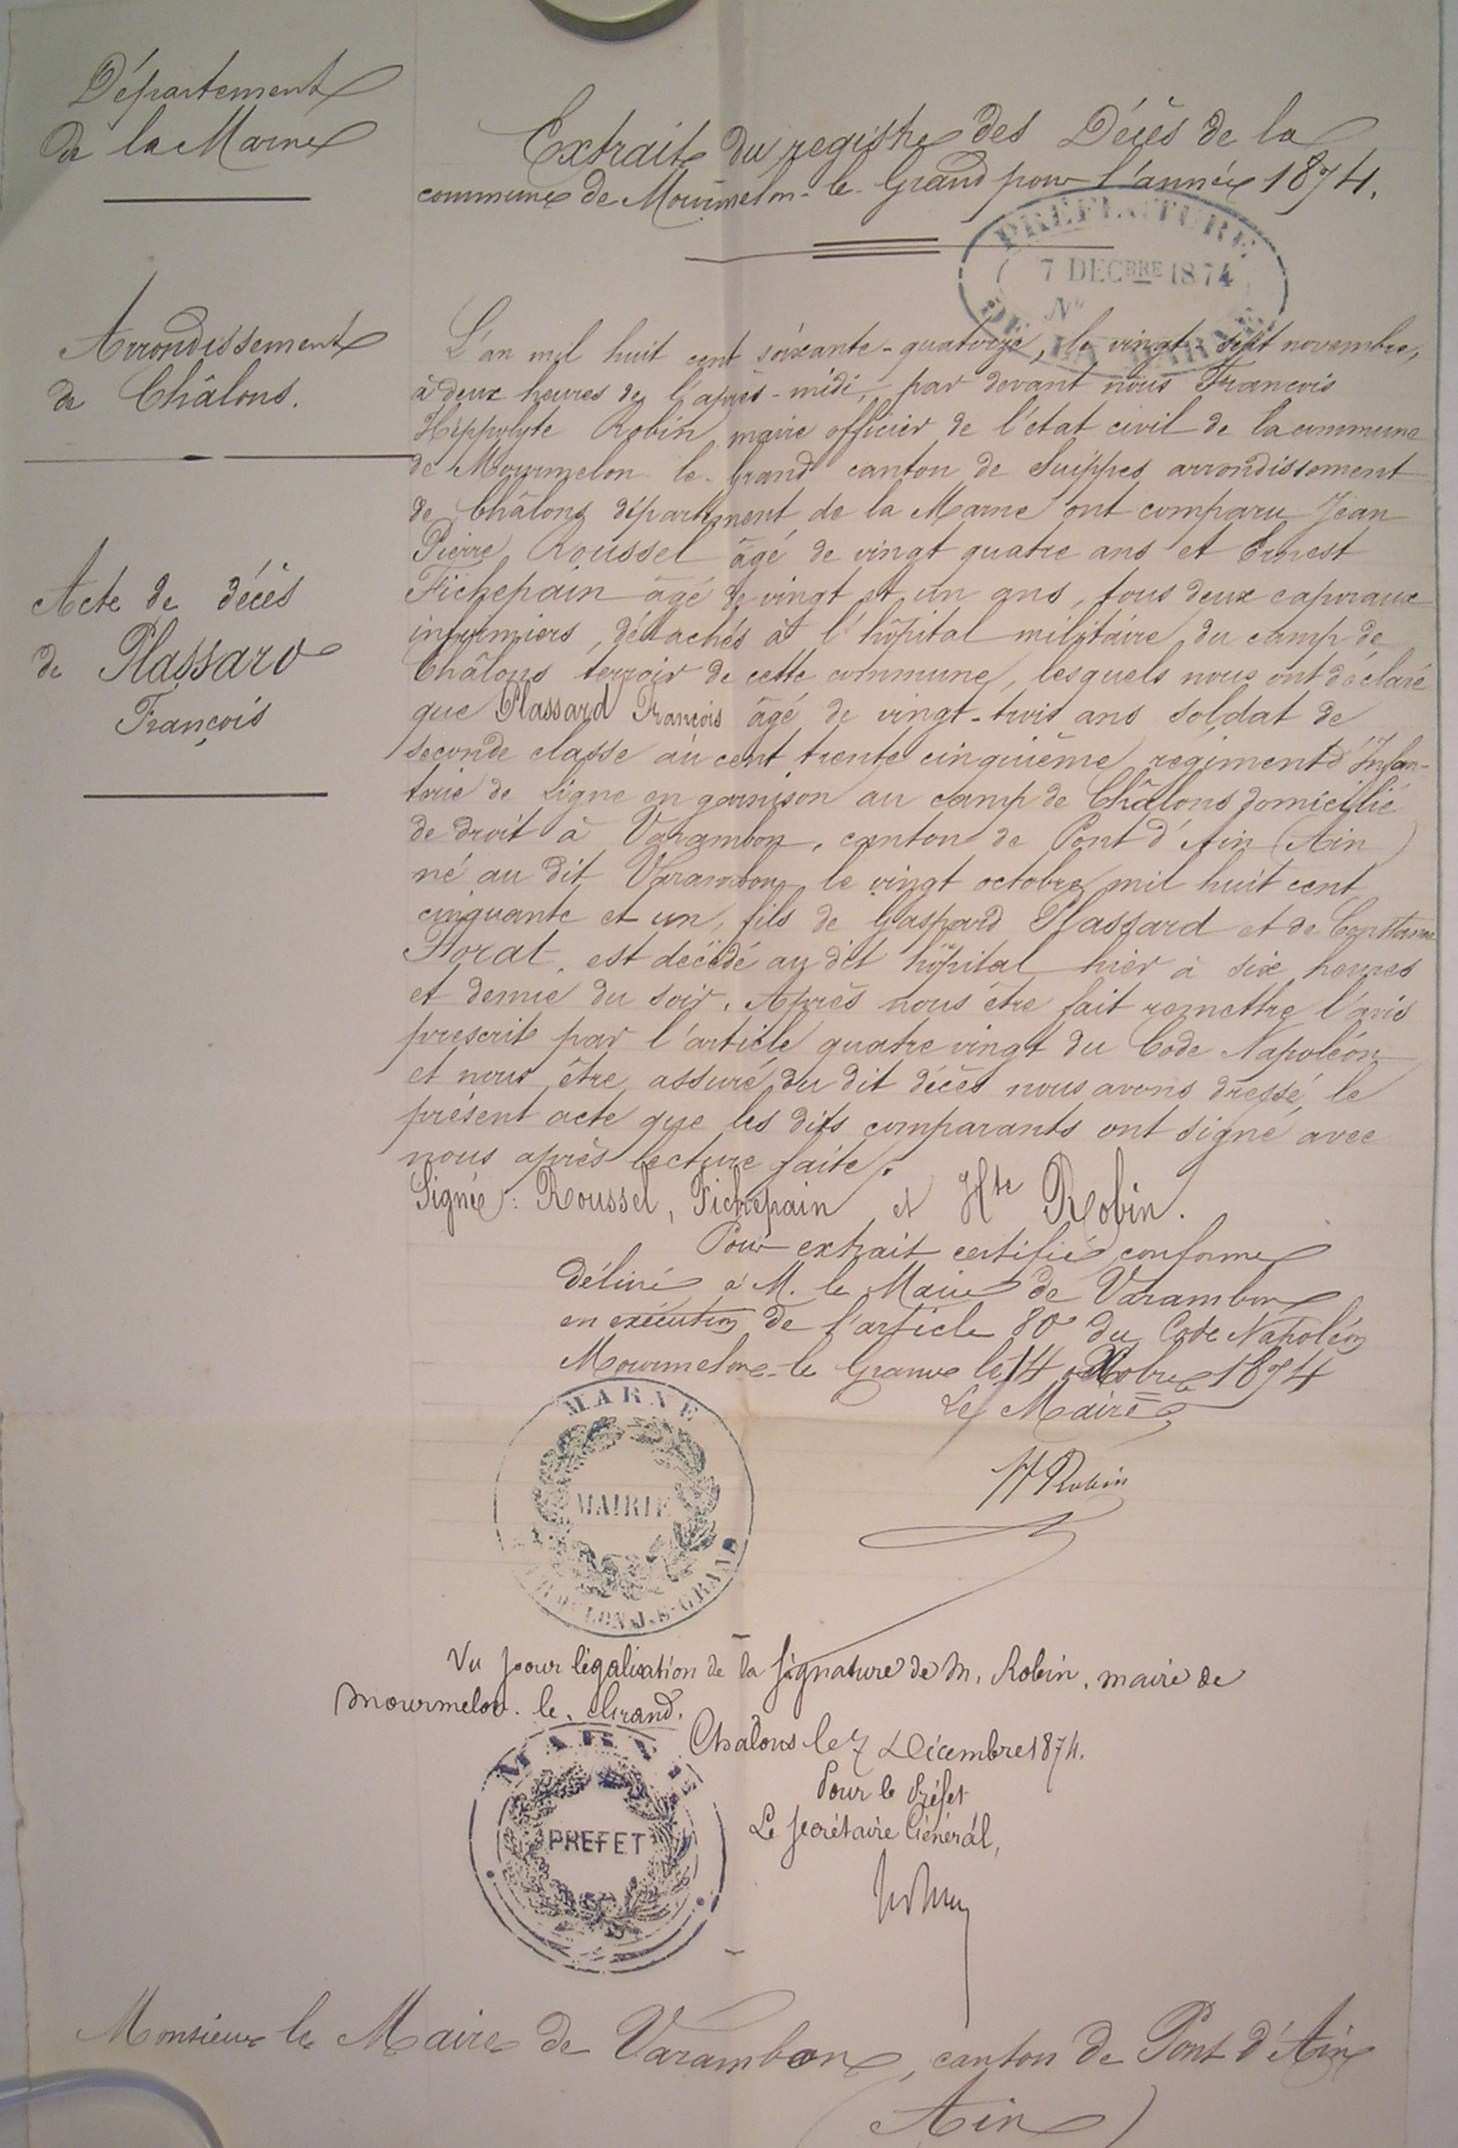 Département
de la Marne
Extrait du registre des Décès de la
commune de Mourmelon-le-Grand pour l'année 1874.
PRÉFECTURE
7 DECBRE 1874
No
DE LA MARNE
Arrondissement
de Châlons.
Acte de décès
de Plassard
François
L'an mil huit cent soixante-quatorze, le vingt-sept novembre,
à deux heures de l'après-midi, par devant nous François
Hippolyte Robin maire officier de l'état civil de la commune
de Mourmelon le Grand canton de Suippes arrondissement
de Châlons département de la Marne ont comparu Jean
Pierre Roussel âgé de vingt quatre ans et Ernest
Fichepain âgé de vingt et un ans, tous deux caporaux
infirmiers, détachés à l'hôpital militaire du camp de
Châlons terroir de cette commune, lesquels nous ont déclaré
que Plassard François âgé de vingt-trois ans soldat de
seconde classe au cent trente cinquième régiment d'Infan-
terie de Ligne en garnison au camp de Châlons domicilié
de droit à Varambon, canton de Pont d'Ain (Ain)
né au dit Varambon le vingt octobre mil huit cent
cinquante et un, fils de Gaspard Plassard et de Constance
Morat, est décédé au dit hôpital hier à six heures
et demie du soir. Après nous être fait remettre l'avis
prescrit par l'article quatre vingt du Code Napoléon
et nous être assuré du dit décès nous avons dressé le
présent acte que les dits comparants ont signé avec
nous après lecture faite.
Signé: Roussel, Fichepain et Hte Robin.
Pour extrait certifié conforme
délivré à M. le Maire de Varambon
en exécution de l'article 80 du Code Napoléon
Mourmelon-le Grand le 1874
Le Maire
H Robin
MARNE
MAIRIE
MOURMELON-LE-GRAND
Vu pour légalisation de la signature de M. Robin, maire de
Mourmelon. le. Grand.
Châlons le 7 Décembre 1874.
Pour le Préfet
Le Secrétaire Général,
MARNE
PREFET
Monsieur le Maire de Varambon, canton de Pont d'Ain
(Ain)